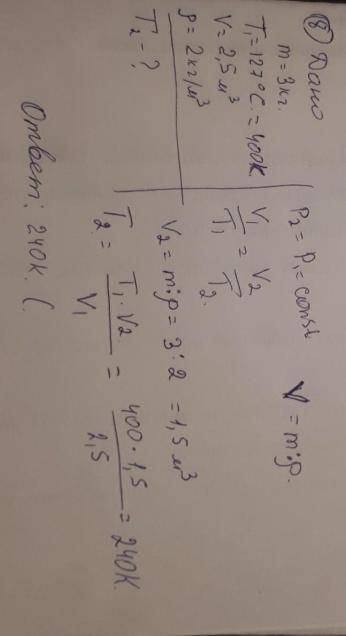 8) Дано
m = 3 кг.
T₁ = 127°C. = 400K.
V = 2,5 м³
ρ = 2 кг/м³
T₂ - ?
P₂ = P₁ = const
V = m:ρ.
V₁/T₁ = V₂/T₂.
V₂ = m:ρ = 3:2 = 1,5 м³
T₂ = T₁·V₂/V₁ = 400·1,5/2,5 = 240K.
Ответ: 240K. (